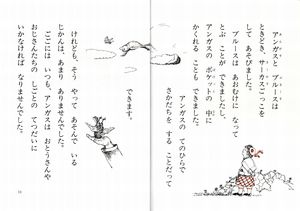 アンガスと ブルースは
ときどき、サーカスごっこを
して あそびました。
ブルースは あおむけに なって
とぶ ことが できましたし、
アンガスの ポケットの 中に
かくれる ことも できました。
アンガスの てのひらで
さかだちを する ことだって
できます。
けれども、そう やって あそんで いる
じかんは、あまり ありませんでした。
ここには いつも、アンガスは おとうさんや
おじさんたちの しごとの てつだいに
いかなければ なりませんでした。